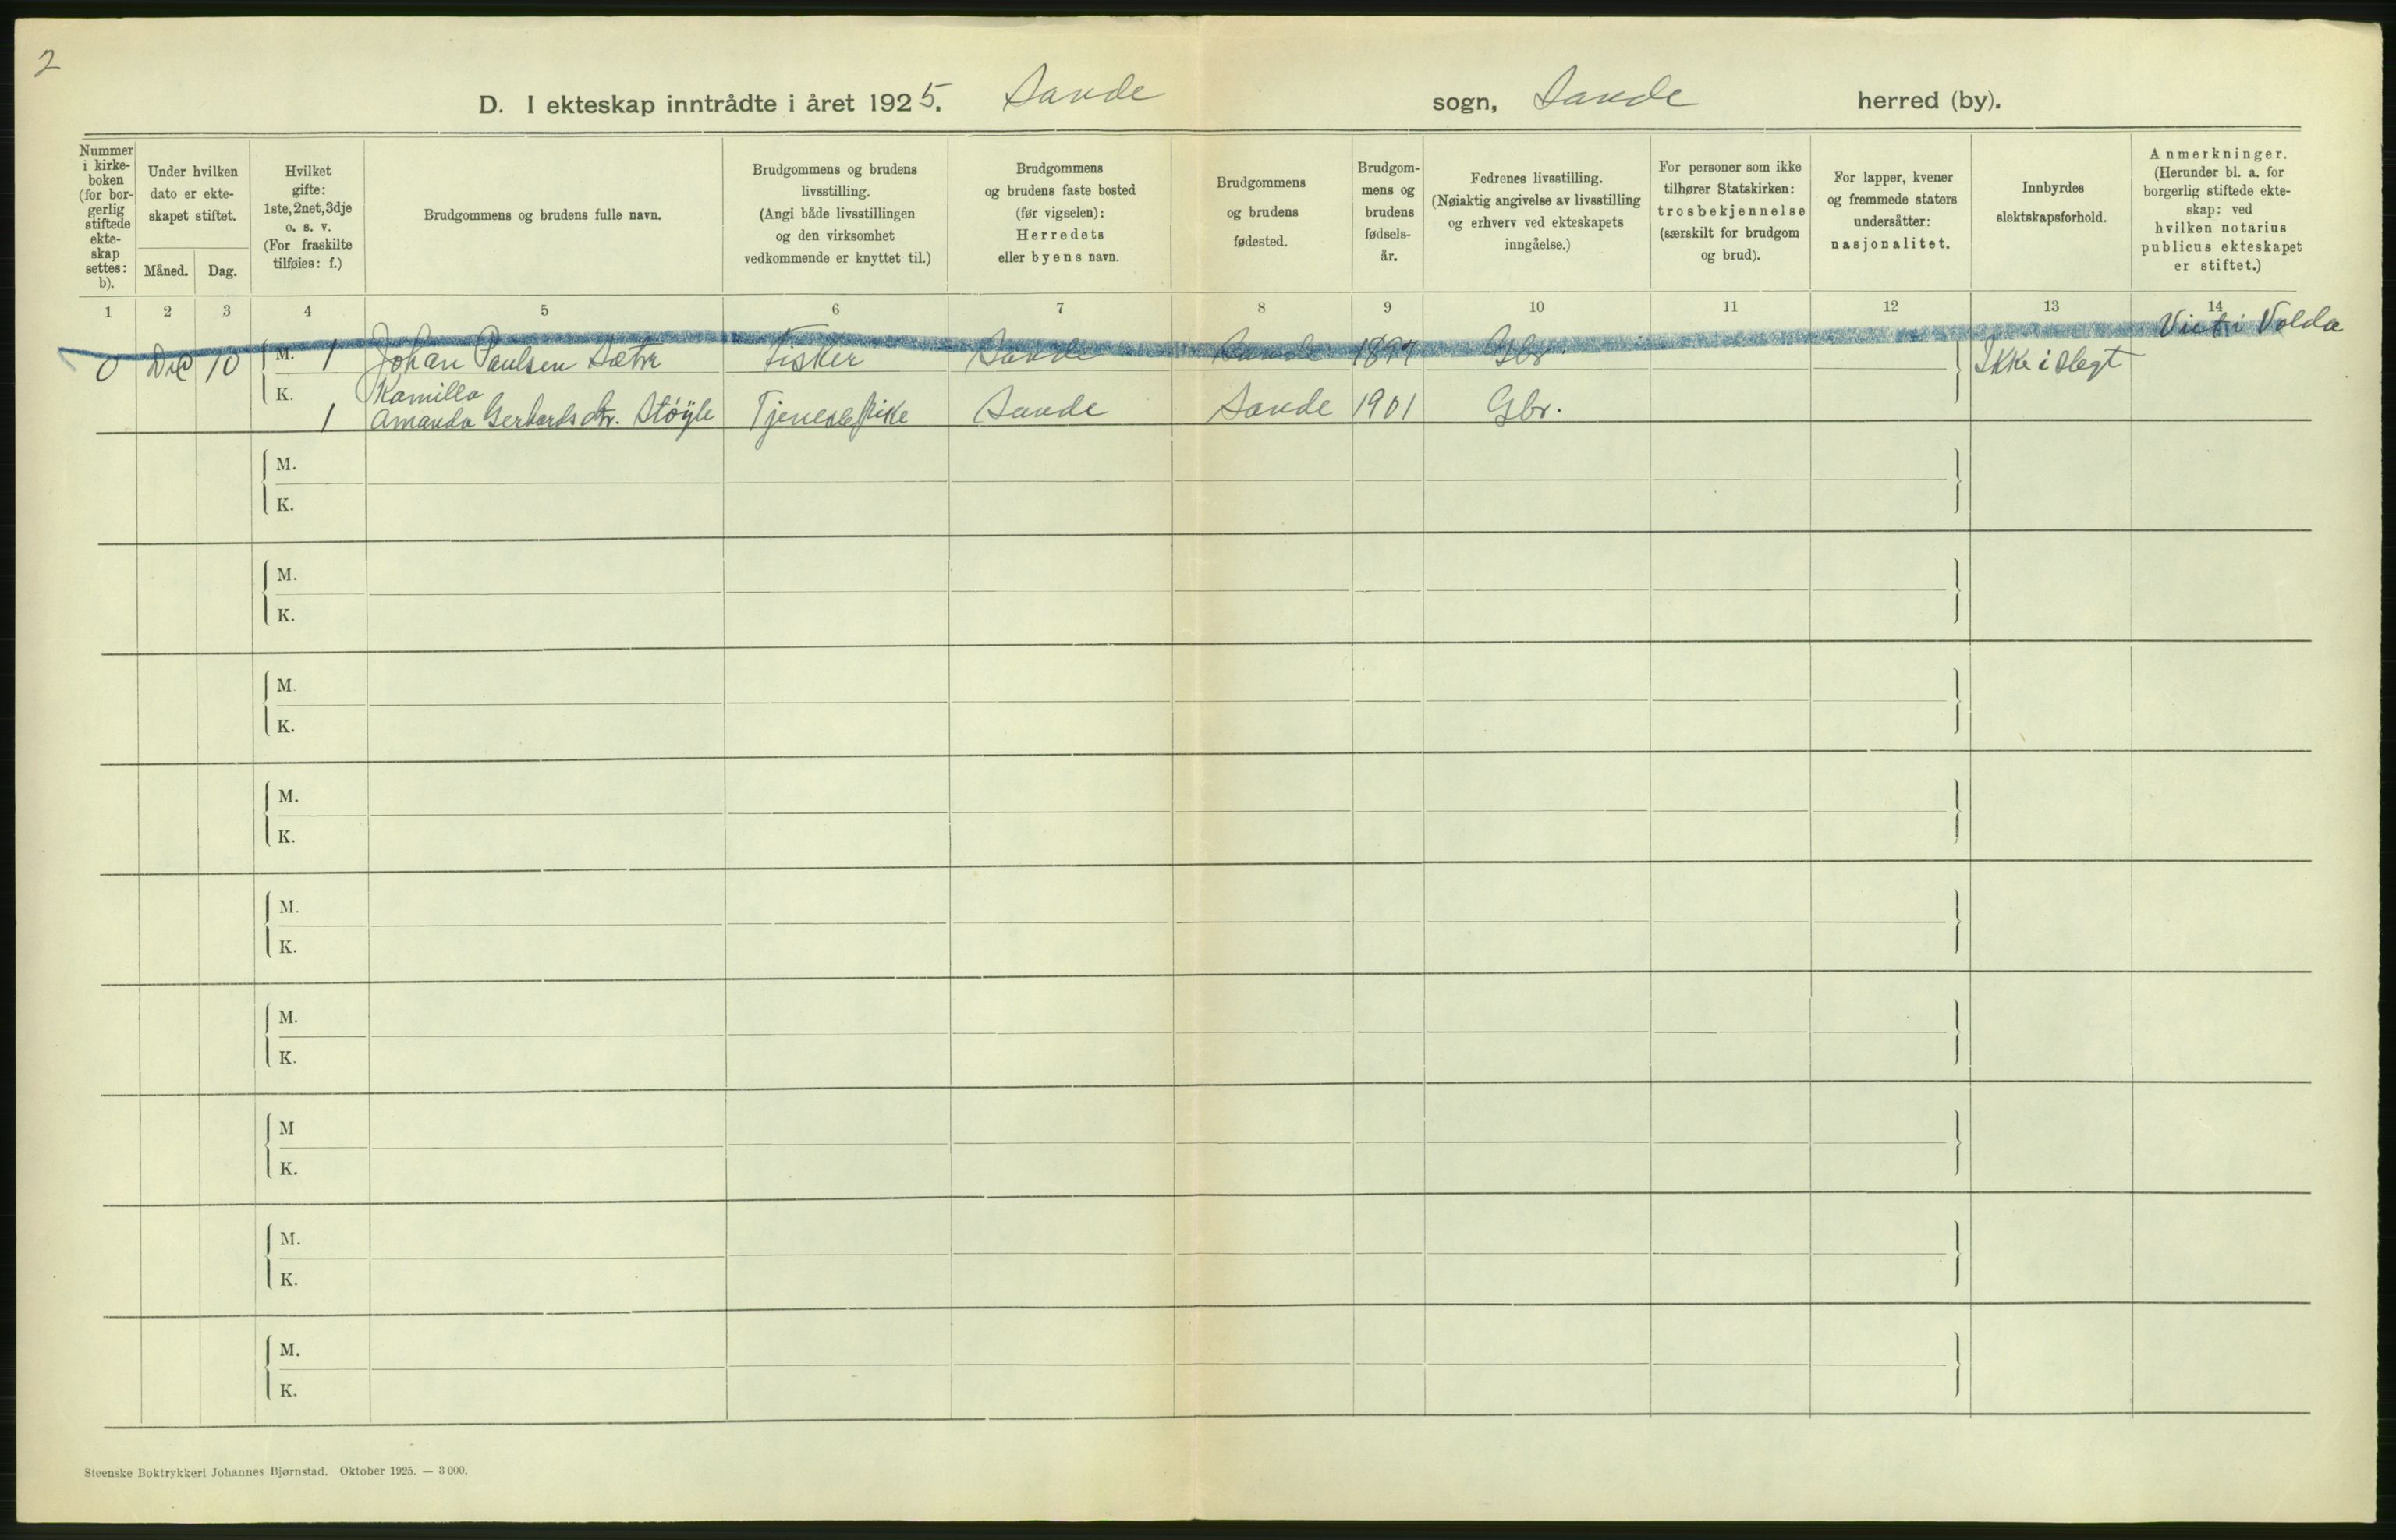 2
D. I ekteskap inntrådte i året 1925. Sande sogn, Sande herred (by).
Nummer i kirke- boken (for bor- gerlig stiftede ekte- skap settes: b).
Under hvilken dato er ekte- skapet stiftet.
Måned. Dag.
Hvilket gifte: 1ste, 2net, 3dje o. s. v. (For fraskilte tilføies: f.)
Brudgommens og brudens fulle navn.
Brudgommens og brudens livsstilling. (Angi både livsstillingen og den virksomhet vedkommende er knyttet til.)
Brudgommens og brudens faste bosted (før vigselen): Herredets eller byens navn.
Brudgommens og brudens fødested.
Brudgom- mens og brudens fødsels- år.
Fedrenes livsstilling. (Nøiaktig angivelse av livsstilling og erhverv ved ekteskapets inngåelse.)
For personer som ikke tilhører Statskirken: trosbekjennelse (særskilt for brudgom og brud).
For lapper, kvener og fremmede staters undersåtter: nasjonalitet.
Innbyrdes slektskapsforhold.
Anmerkninger. (Herunder bl. a. for borgerlig stiftede ekte- skap: ved hvilken notarius publicus ekteskapet er stiftet.)
1 2 3 4 5 6 7 8 9 10 11 12 13 14
Viet i Volda
0 10 M. 1 Johan Paulsen Sætre Fisker Sande Sande 1897 Gbr. Ikke i slegt
K. Kamilla
1 Amanda Gerhardsdtr. Støyle Tjenestepike Sande Sande 1901 Gbr.
M.
K.
M.
K.
M.
K.
M.
K.
M.
K.
M.
K.
M
K.
M.
K.
M.
K.
Steenske Boktrykkeri Johannes Bjørnstad. Oktober 1925. — 3 000.